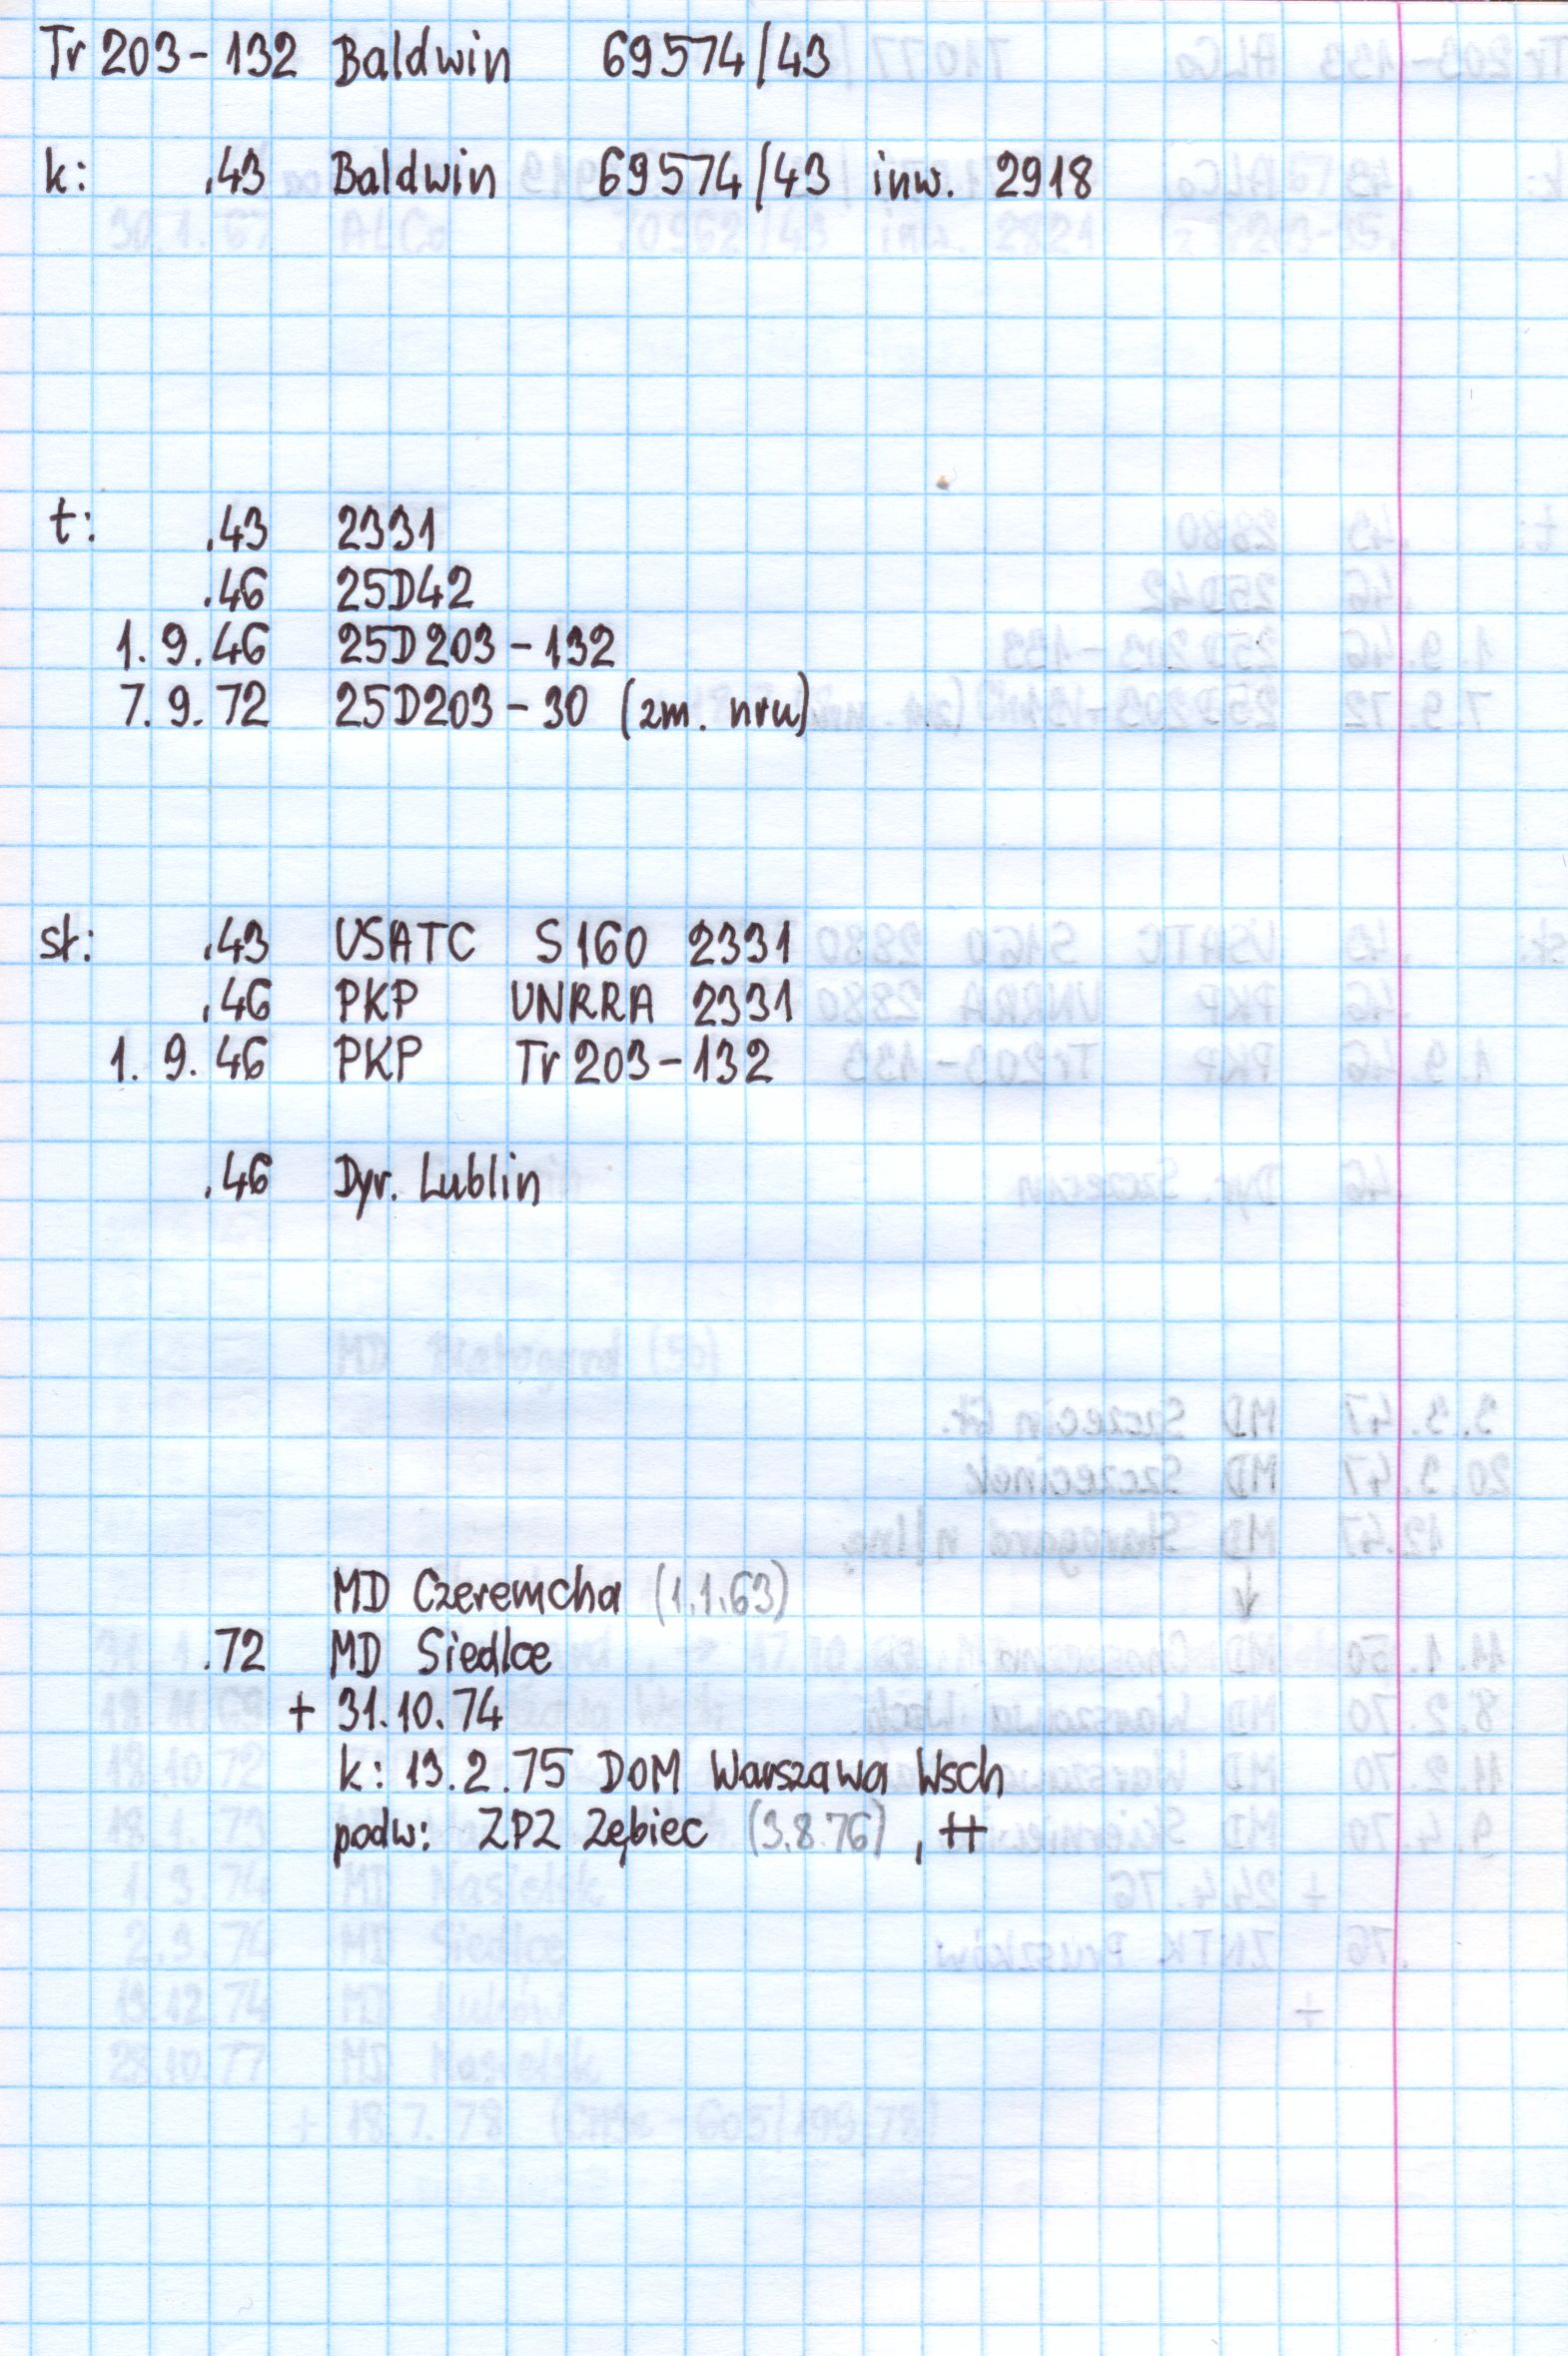 Tr 203-132 Baldwin 69574/43
k: .43 Baldwin 69574/43 inw. 2918
t: .43 2331
.46 25D42
1.9.46 25D203-132
7.9.72 25D203-30 (zm. nru)
st: .43 USATC S160 2331
.46 PKP UNRRA 2331
1.9.46 PKP Tr 203-132
.46 Dyr. Lublin
MD Czeremcha (1.1.63)
.72 MD Siedlce
+ 31.10.74
k: 13.2.75 DOM Warszawa Wsch
podw: ZPZ Zębiec (3.8.76), ++